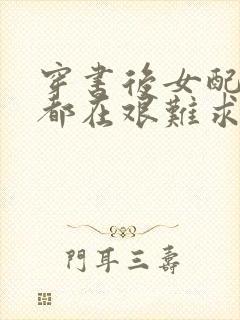 穿書後女配
都在艱難求
門耳三壽